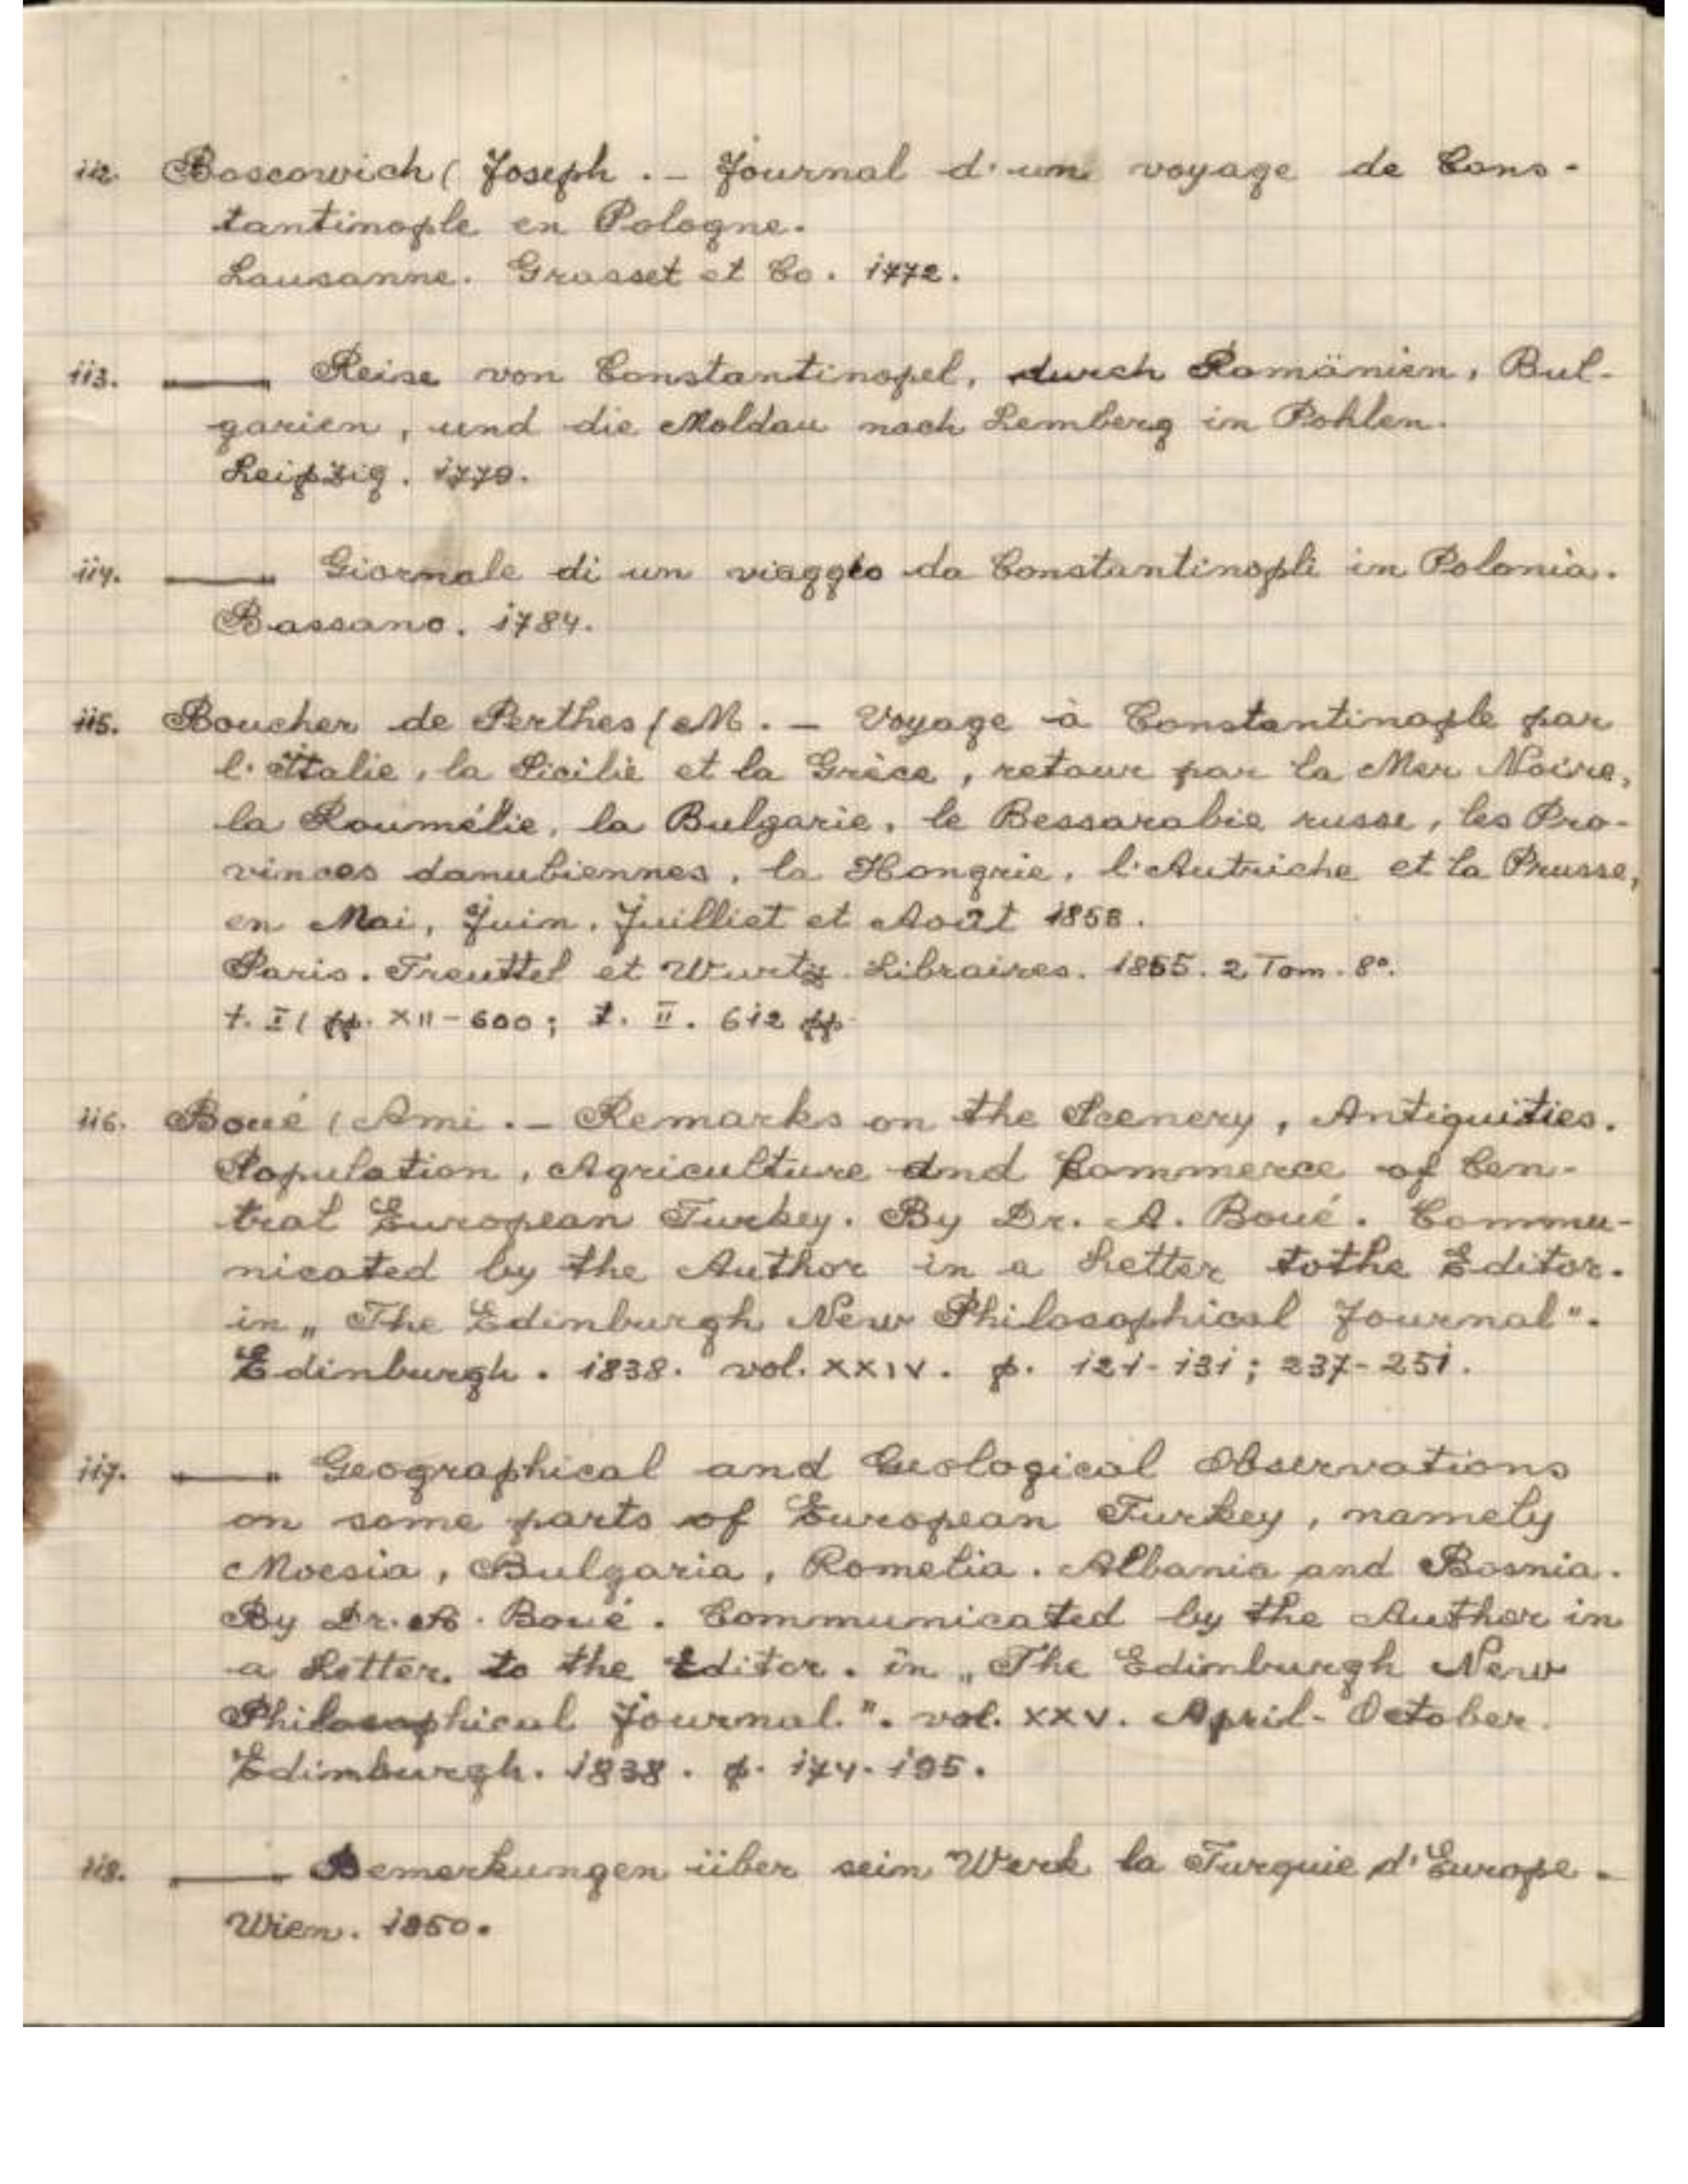 112. Boscowich ( Joseph . – Journal d'un voyage de Cons-
tantinople en Pologne.
Lausanne. Grasset et Co. 1772.
113. —— Reise von Constantinopel, durch Romänien, Bul-
garien, und die Moldau nach Lemberg in Pohlen.
Leipzig. 1779.
114. —— Giornale di un viaggio da Constantinopli in Polonia.
Bassano. 1784.
115. Boucher de Perthes ( M. – Voyage à Constantinople par
l'Italie, la Sicilie et la Grèce, retour par la Mer Noire,
la Roumélie, la Bulgarie, le Bessarabie russe, les Pro-
vinces danubiennes, la Hongrie, l'Autriche et la Prusse,
en Mai, Juin, Juilliet et Août 1853.
Paris. Treuttel et Wurtz Libraires. 1855. 2 Tom. 8°.
t. I ( pp. XII-600; t. II. 612 pp.
116. Boué ( Ami . – Remarks on the Scenery, Antiquities.
Population, Agriculture and Commerce of Cen-
tral European Turkey. By Dr. A. Boué. Commu-
nicated by the Author in a Letter tothe Editor.
in „The Edinburgh New Philosophical Journal".
Edinburgh. 1838. vol. XXIV. p. 121-131; 237-251.
117. —— Geographical and Geological Observations
on some parts of European Turkey, namely
Moesia, Bulgaria, Romelia. Albania and Bosnia.
By Dr. A. Boué. Communicated by the Author in
a Letter. to the Editor. in „The Edimburgh New
Philosophical Journal.". vol. XXV. April-October.
Edimburgh. 1838. p. 174-195.
118. —— Bemerkungen über sein Werk la Turquie d'Europe.
Wien. 1850.